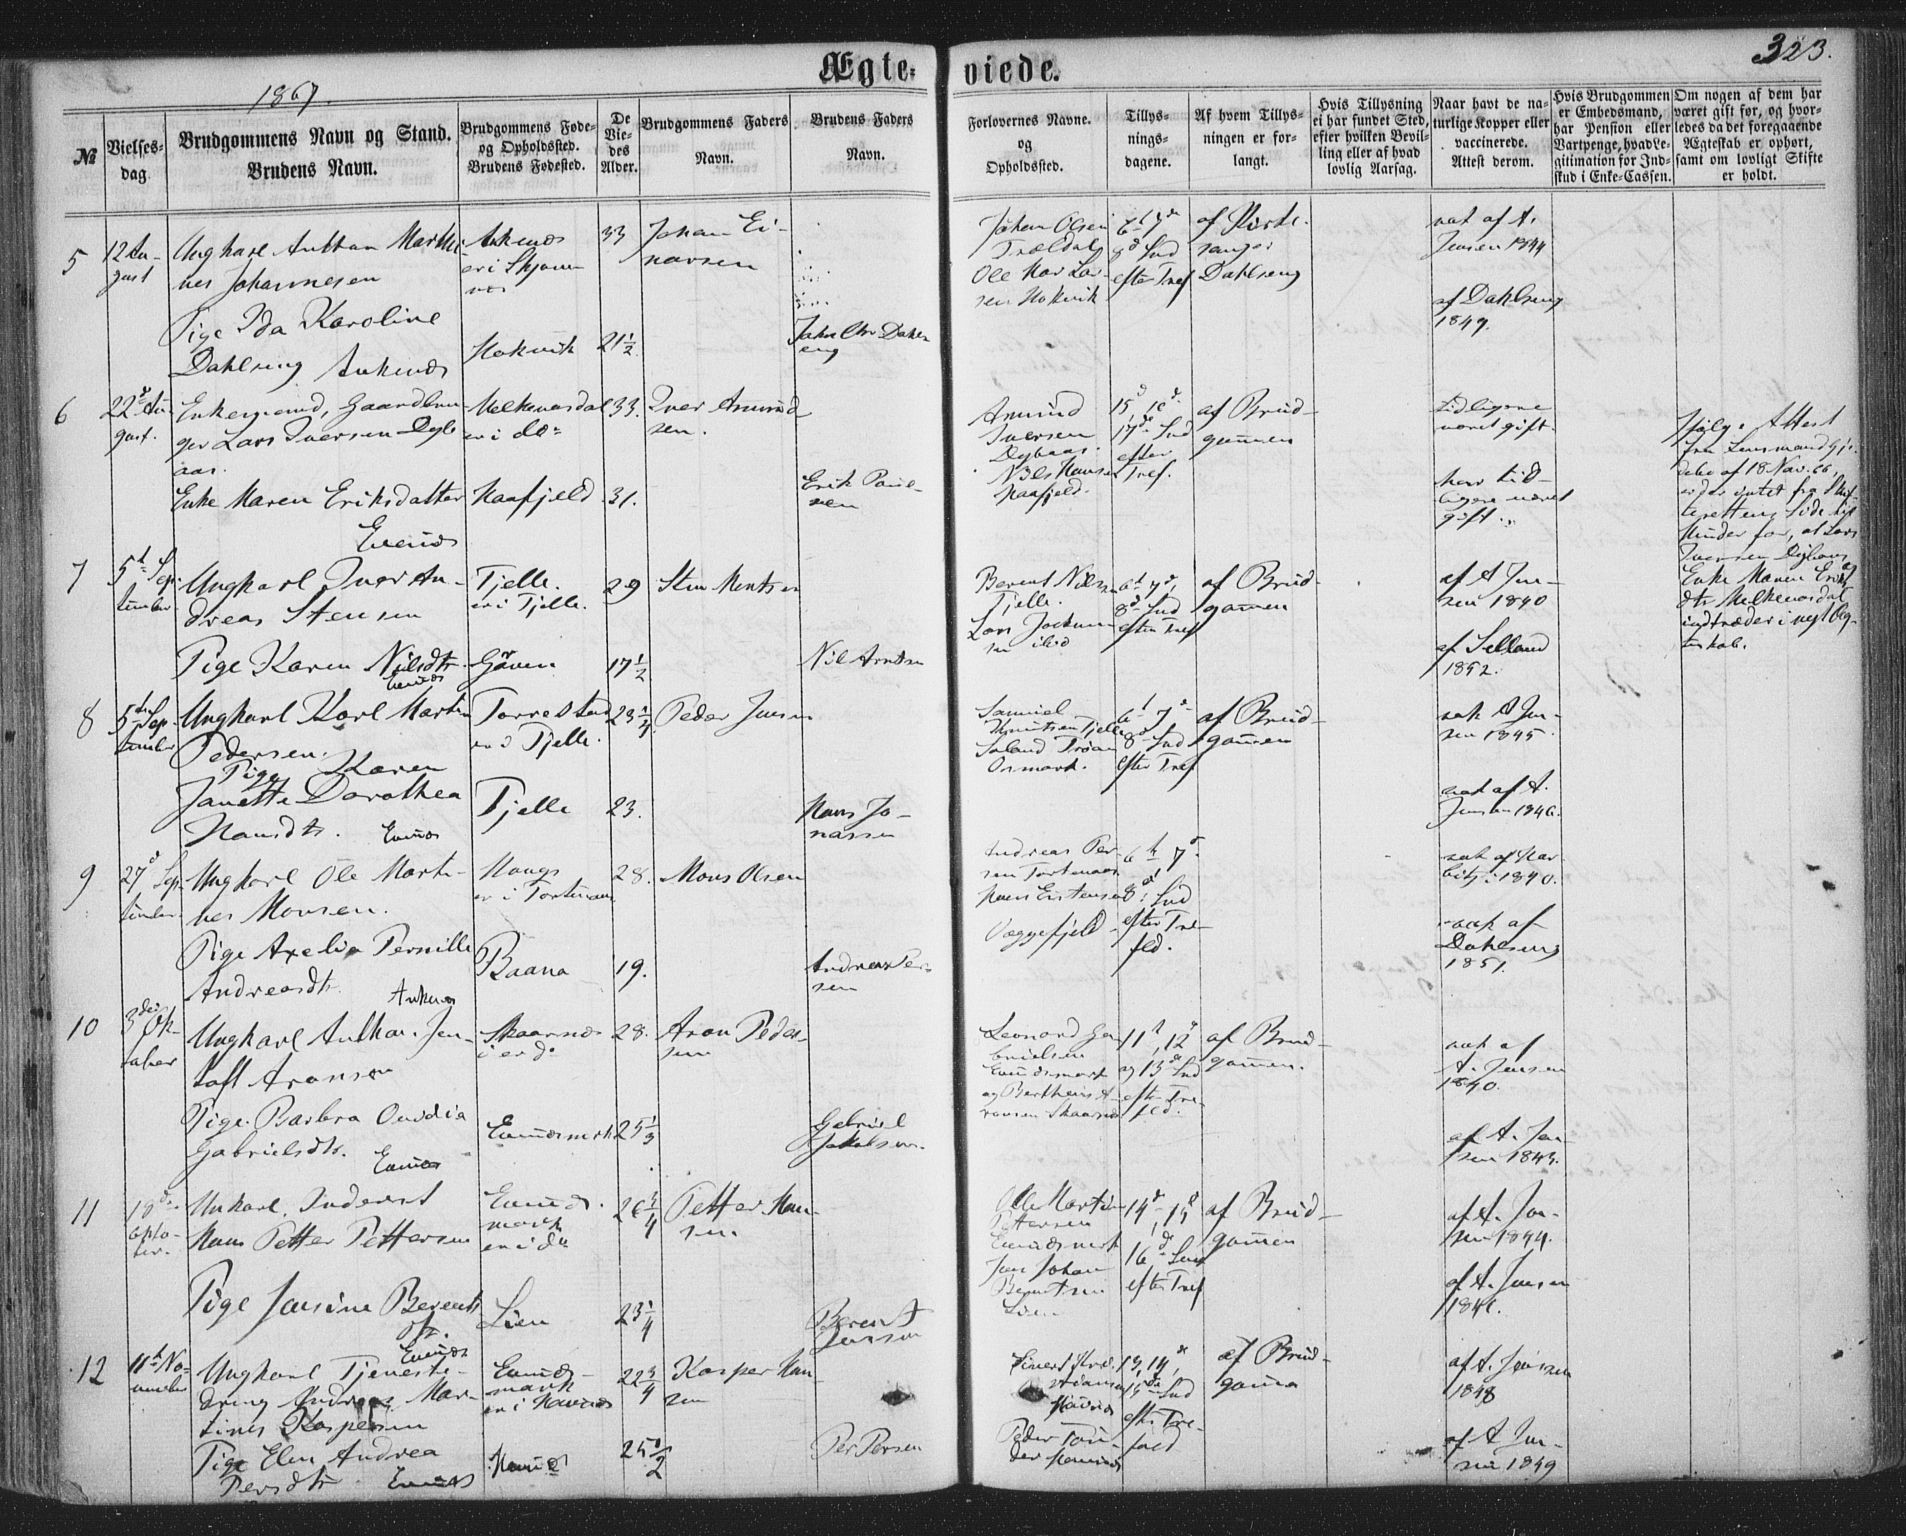 Ægte-viede.
323.
1867.
№
Vielses-dag
Brudgommens Navn og Stand.
Brudens Navn.
Brudgommens Føde-
og Opholdssted.
Brudens Fødested.
De
Vie-
des
Alder.
Brudgommens Faders
Navn.
Brudens Faders
Navn.
Forlovernes Navne.
og
Opholdssted.
Tillys-
nings-
dagene.
Af hvem Tillys-
ningen er for-
langt.
Hvis Tillysning
ei har fundet Sted,
efter hvilken Bevil-
ling eller af hvad
lovlig Aarsag.
Naar havt de na-
turlige Kopper eller
vaccinerede.
Attest derom.
Hvis Brudgommen
er Embedsmand,
har Pension eller
Vartpenge, hvad Le-
gitimation for Ind-
skud i Enke-Cassen.
Om nogen af dem har
været gift før, og hvor-
ledes da det foregaaende
Ægteskab er ophørt,
samt om lovligt Skifte
er holdt.
5
12 Au-
gust
Ungkarl Anthon Marthi
nes Johannesen
Ankenæs
er i Skjom
næs
33
Johan Ei-
narsen
Johan Olsen
Trældal
Ole Lar-
sen Hokvik
6t 7de
8d Snd
efter Tref
af Kirke-
sanger
Dahlseng
vak af A.
Jensen 1844
Pige Ida Karoline
Dahlseng Ankenæs
Hokvik
21 1/2
Dahls
eng
af Dahlseng
1849.
6
22d Au-
gust.
Enkemand, Gaardbru-
ger Lars Iversen Dyb
aas.
Melkevasdal
er i do
33.
Iver Amund
sen.
Amund
Iversen
Dybaas.
Nils Hansen
Haafjeld.
15d, 16d
17de Snd
efter
Tref.
af Brud-
gommen
tidligere
været gift.
Ifølge Attest
fra Lensmand
af 18 Nov. 66,
er der intet fra Skif-
terettens Side til
Hinder for, at Lars
Iversen Dybaas og
Enke Maren Eriks
dtr Melkevasdal
indtræder i nyt Æg-
teskab.
Enke Maren Eriksdatter
Evenæs
Haafjeld
31.
Erik
har tid-
ligere været
gift.
7
5t Sep-
tember
Ungkarl Iver An-
dreas Stensen
Tjelle.
er i Tjelle.
29
Sten Mentsen
Berent Nilsen
Tjelle.
Lars Jochum
sen ibid
6t 7d,
8d Snd
efter Tref
af Brud-
gommen
af A Jen-
sen 1840
Pige Karen Nilsdtr.
Evenæs
17 1/2
Nils
af Selland
1852.
8
5te Sep-
tember
Ungkarl Karl Martin
Pedersen.
Torrestad
er i Tjelle.
23 1/4
Peder Jensen
Samuel
Knutsen Tjelle
Osmark.
6t 7d
8d Snd
efter Tref
af Brud-
gommen
vak A Jen-
sen 1845.
Pige Karen
Janette Dorothea
Hansdtr. Evenæs
Tjelle
23.
Hans Jo-
nassen
vak af A.
Jensen 1846.
9
27d Sep-
tember
Ungkarl Ole Marti-
nes Monsen.
Haugs
er i Tortenaas
28.
Mons Olsen
Andreas Per-
sen Tortenaas
Hans Eistensen
Væggefjeld
6t 7d.
8d Snd
efter Tre-
fld.
vak af Kar-
bitz i 1840.
Pige Axelia Pernille
Andreasdtr.
Ankenæs
19.
Andreas Per-
sen
vak af
Dahlseng
1851.
10
3die Ok-
tober
Ungkarl Anthon Jen-
toft Aronsen
Skaarnæs
i er do
28.
Aron Peder-
sen
Leonard Ga-
brielsen
Evenæsmark
og Bertheus A-
ronsen Skaarnæs
11t, 12d
og 13d Snd
efter Tre-
fld.
af Brud-
gommen.
vak af
A. Jensen
1840.
Pige Barbra Ovedia
Gabrielsdtr.
Evenæs
Evenæsmark
25 1/3
Gabriel
Jakobsen.
af A. Jen-
sen 1843.
11
18d
Okto-
ber.
Unkarl. Inderst
Hans Petter Pettersen
Evenæs-
mark
er i do
26 3/4
Petter Han-
sen.
Ole Martin
Pettersen
Evenæsmark
Jens Johan
Berntsen
Lien
14d, 15d
16d Snd
efter Tref
af Brud-
gommen
af A. Jen-
sen 1844.
Pige Jensine Berents
dtr.
Evenæs
Lien
23 1/4
Berent
Jensen
af A. Jensen
1846.
12
11t No-
vember
Ungkarl Tjeneste-
dreng Andreas Mar-
tines Kaspersen
Evenæs-
mark
er i
22 3/4
Kasper Han-
sen
Peder
13, 14d,
15de Snd
efter Tre-
fold
af Brud-
gom
af A. Jensen
1848
Pige Elen Andrea
Persdtr. Evenæs
25 1/2
Per Persen
af A Jen-
sen 1849